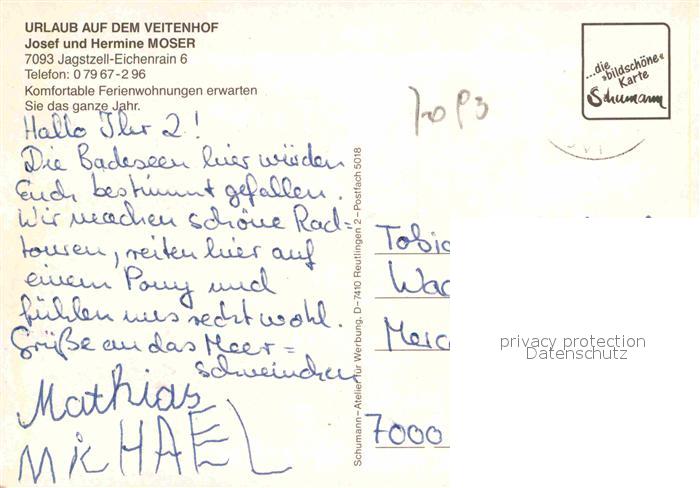 URLAUB AUF DEM VEITENHOF
Josef und Hermine MOSER
7093 Jagstzell-Eichenrain 6
Telefon: 0 79 67-2 96
Komfortable Ferienwohnungen erwarten
Sie das ganze Jahr.
Hallo Ihr 2!
Die Badeseen hier würden
Euch bestimmt gefallen.
Wir machen schöne Rad=
touren, reiten hier auf
einem Pony und
fühlen uns recht wohl.
Grüße an das Meer=
schweinchen
Mathias
MiCHAEL
Schumann – Atelier für Werbung, D-7410 Reutlingen 2 – Postfach 5018
...die
»bildschöne«
Karte
Schumann
7093
Tobia
Wac
Merc
7000
privacy protection
Datenschutz